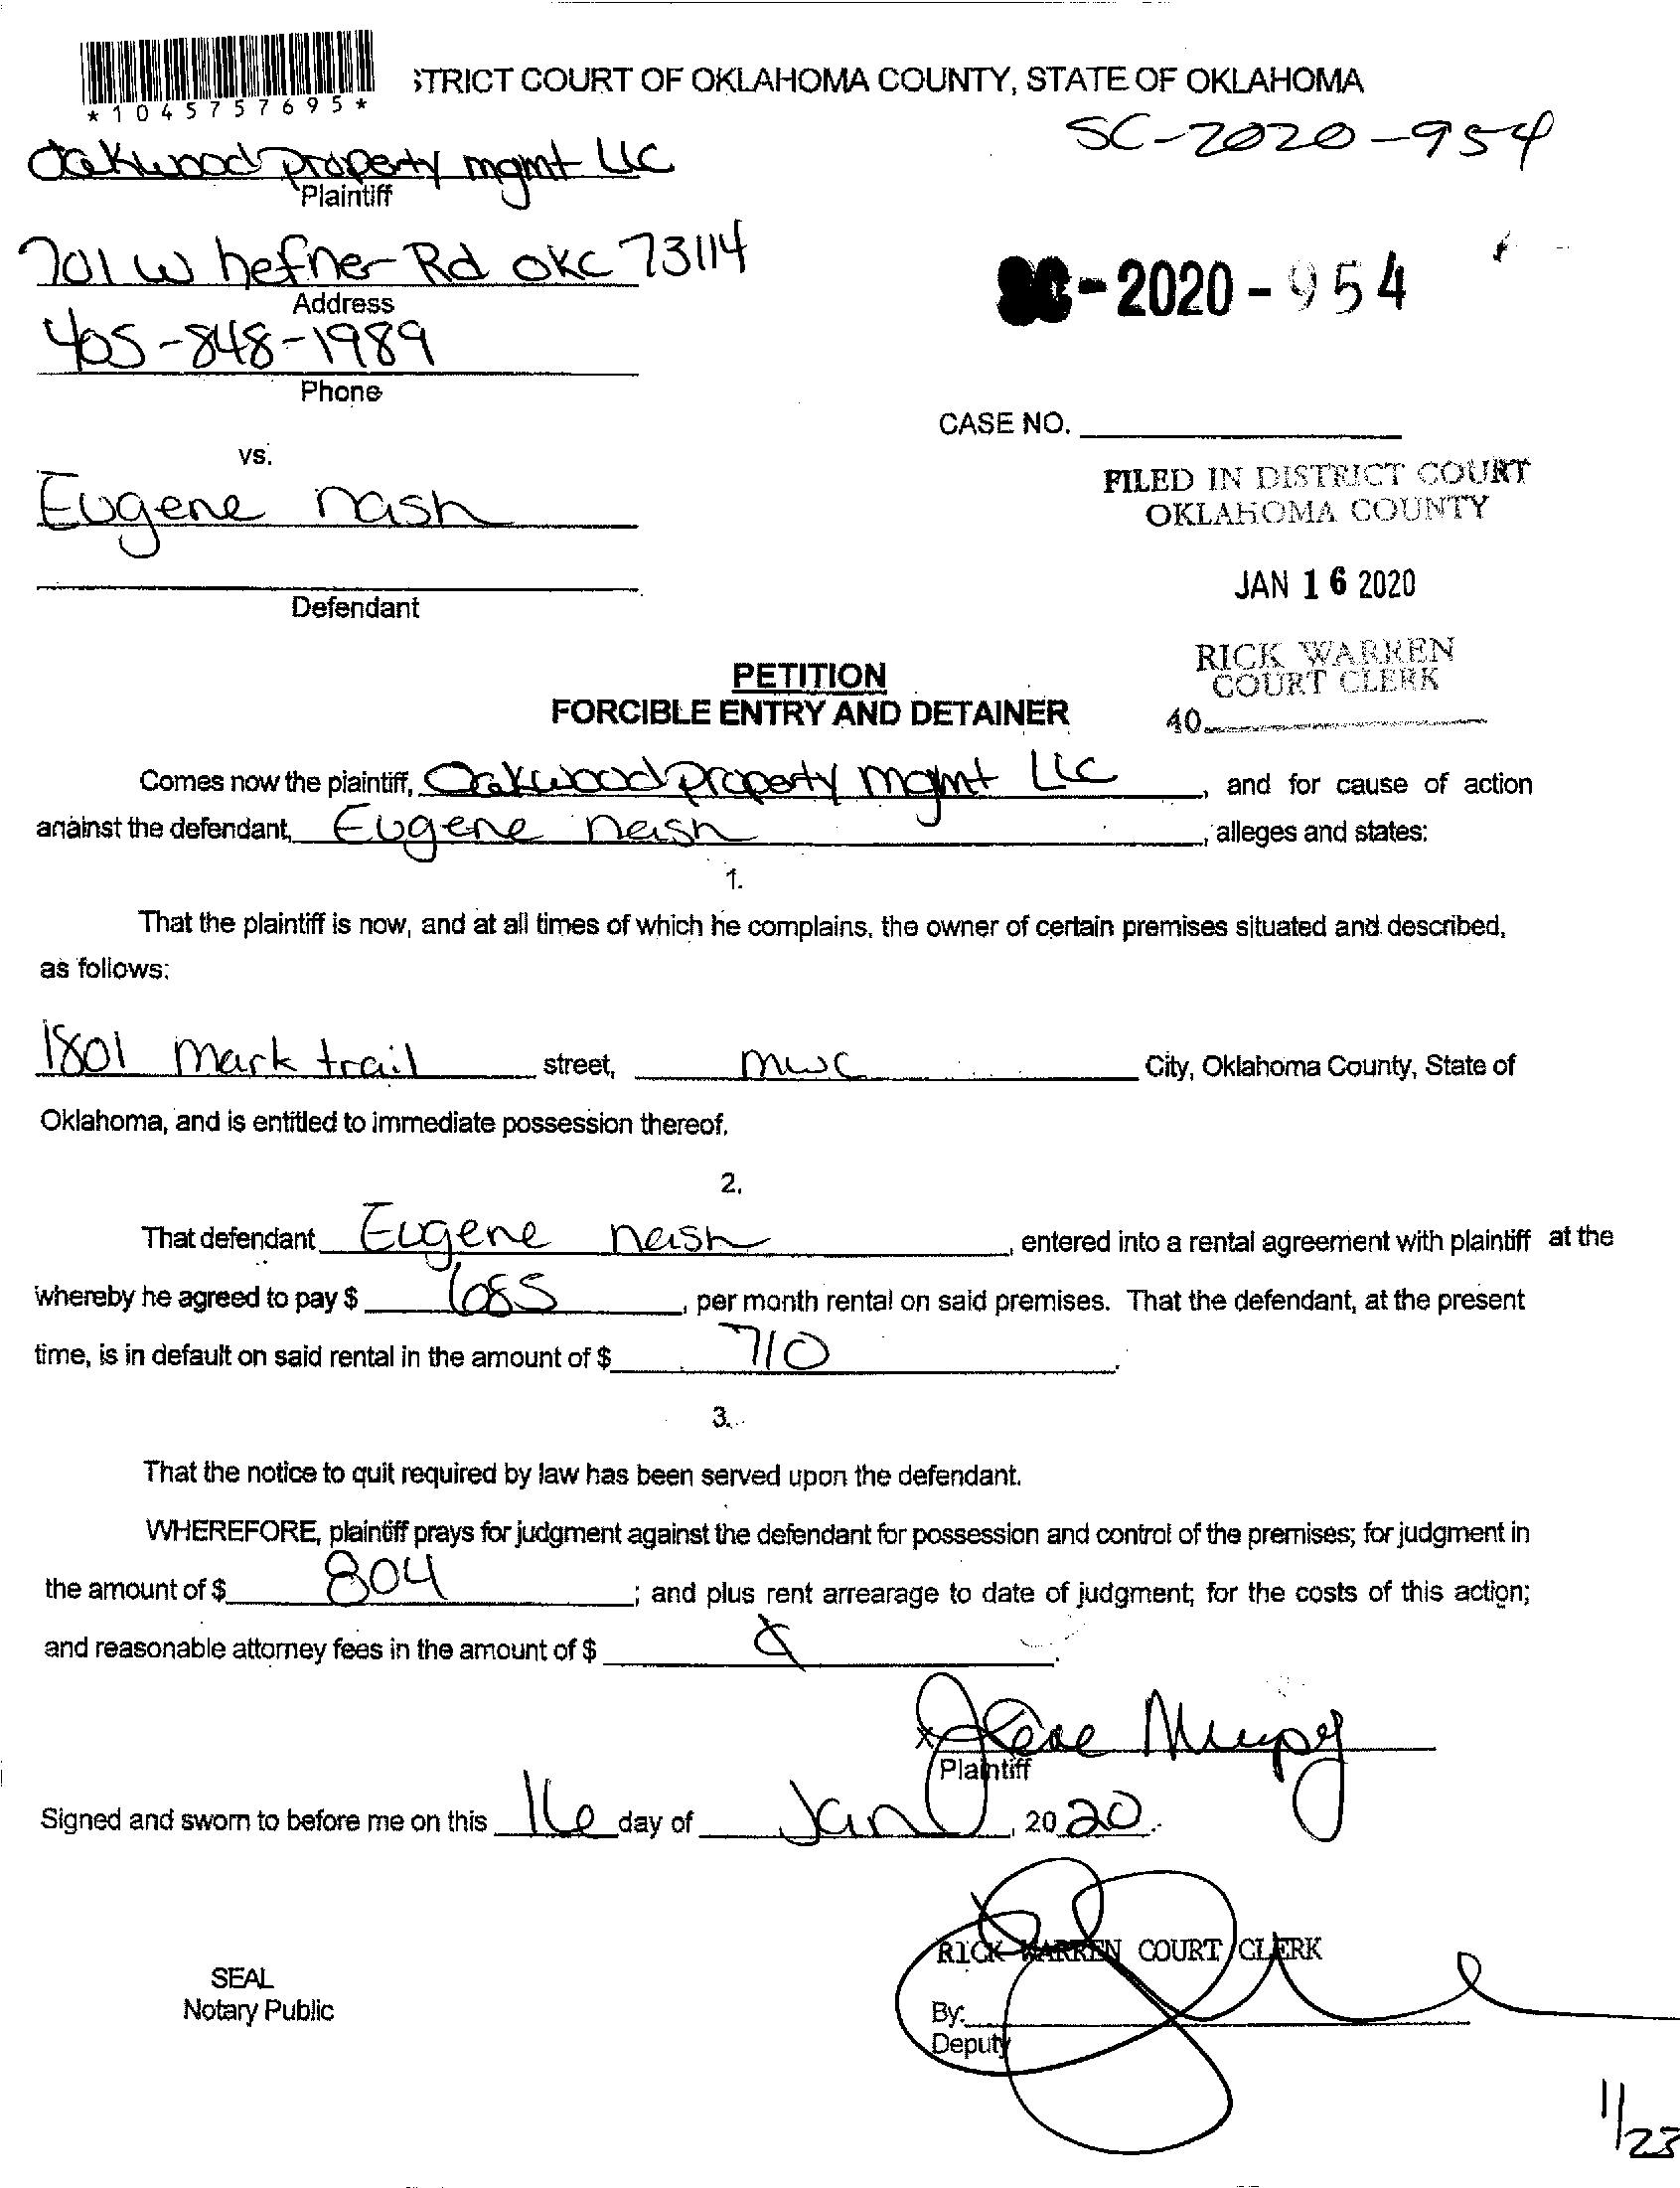 *1045757695*
STRICT COURT OF OKLAHOMA COUNTY, STATE OF OKLAHOMA
SC-2020-954
Oakwood Property mgmt LLC
Plaintiff
701 W hefner Rd OKC 73114
Address
SC-2020-954
405-848-1989
Phone
CASE NO.
vs.
Eugene nash
FILED IN DISTRICT COURT
OKLAHOMA COUNTY
JAN 16 2020
Defendant
RICK WARREN
COURT CLERK
40
PETITION
FORCIBLE ENTRY AND DETAINER
Comes now the plaintiff, Oakwood Property mgmt LLC, and for cause of action
against the defendant, Eugene nash, alleges and states:
1.
That the plaintiff is now, and at all times of which he complains, the owner of certain premises situated and described,
as follows:
1801 Mark trail street, mwc City, Oklahoma County, State of
Oklahoma, and is entitled to immediate possession thereof.
2.
That defendant Eugene nash, entered into a rental agreement with plaintiff at the
whereby he agreed to pay $ 685, per month rental on said premises. That the defendant, at the present
time, is in default on said rental in the amount of $ 710.
3.
That the notice to quit required by law has been served upon the defendant.
WHEREFORE, plaintiff prays for judgment against the defendant for possession and control of the premises; for judgment in
the amount of $ 804; and plus rent arrearage to date of judgment; for the costs of this action;
and reasonable attorney fees in the amount of $
Plaintiff
Signed and sworn to before me on this 16 day of Jan, 2020.
RICK WARREN COURT CLERK
SEAL
Notary Public
By:
Deputy
1/23